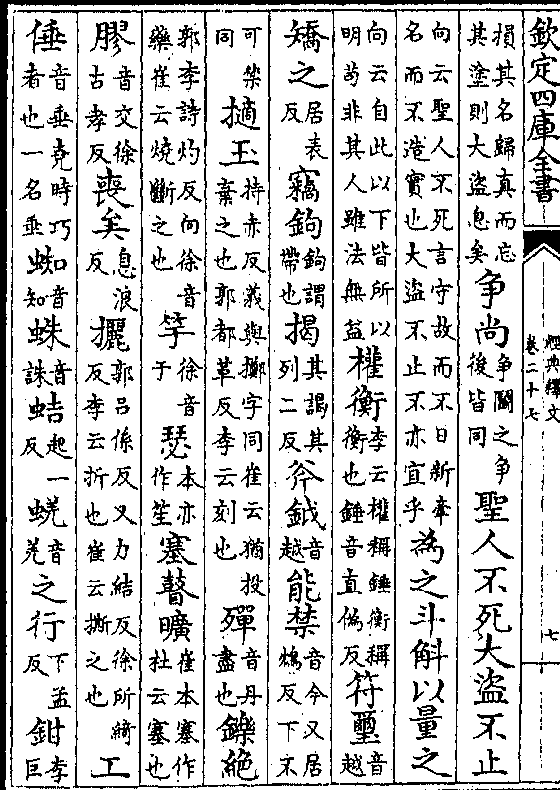 欽定四庫全書
經典釋文
卷二十七
七
損其名歸真而忘其塗則大盜息矣爭尚爭鬭之爭後皆同聖人不死大盜不止
向云聖人不死言守故而不日新牽名而不造實也大盜不止不亦宜乎為之斗斛以量之
向云自此以下皆所以明苟非其人雖法無益權衡李云權稱錘衡稱衡也錘音直偽反符璽音越
矯之居表反竊鉤鉤謂帶也揭其謁其列二反斧鉞音越能禁音今又居鴆反下不
可禁同擿玉持赤反義與擲字同崔云猶投棄之也郭都革反李云刻也殫音丹盡也鑠絶
郭李詩灼反向徐音藥崔云燒斷之也竽徐音于瑟本亦作笙塞瞽曠崔本塞作杜云塞也
膠音交徐古孝反喪矣息浪反攦郭呂係反又力結反徐所綺反李云折也崔云撕之也工
倕音垂堯時巧者也一名垂蜘音知蛛音誅蛣起一反蜣音羌之行下孟反鉗李巨